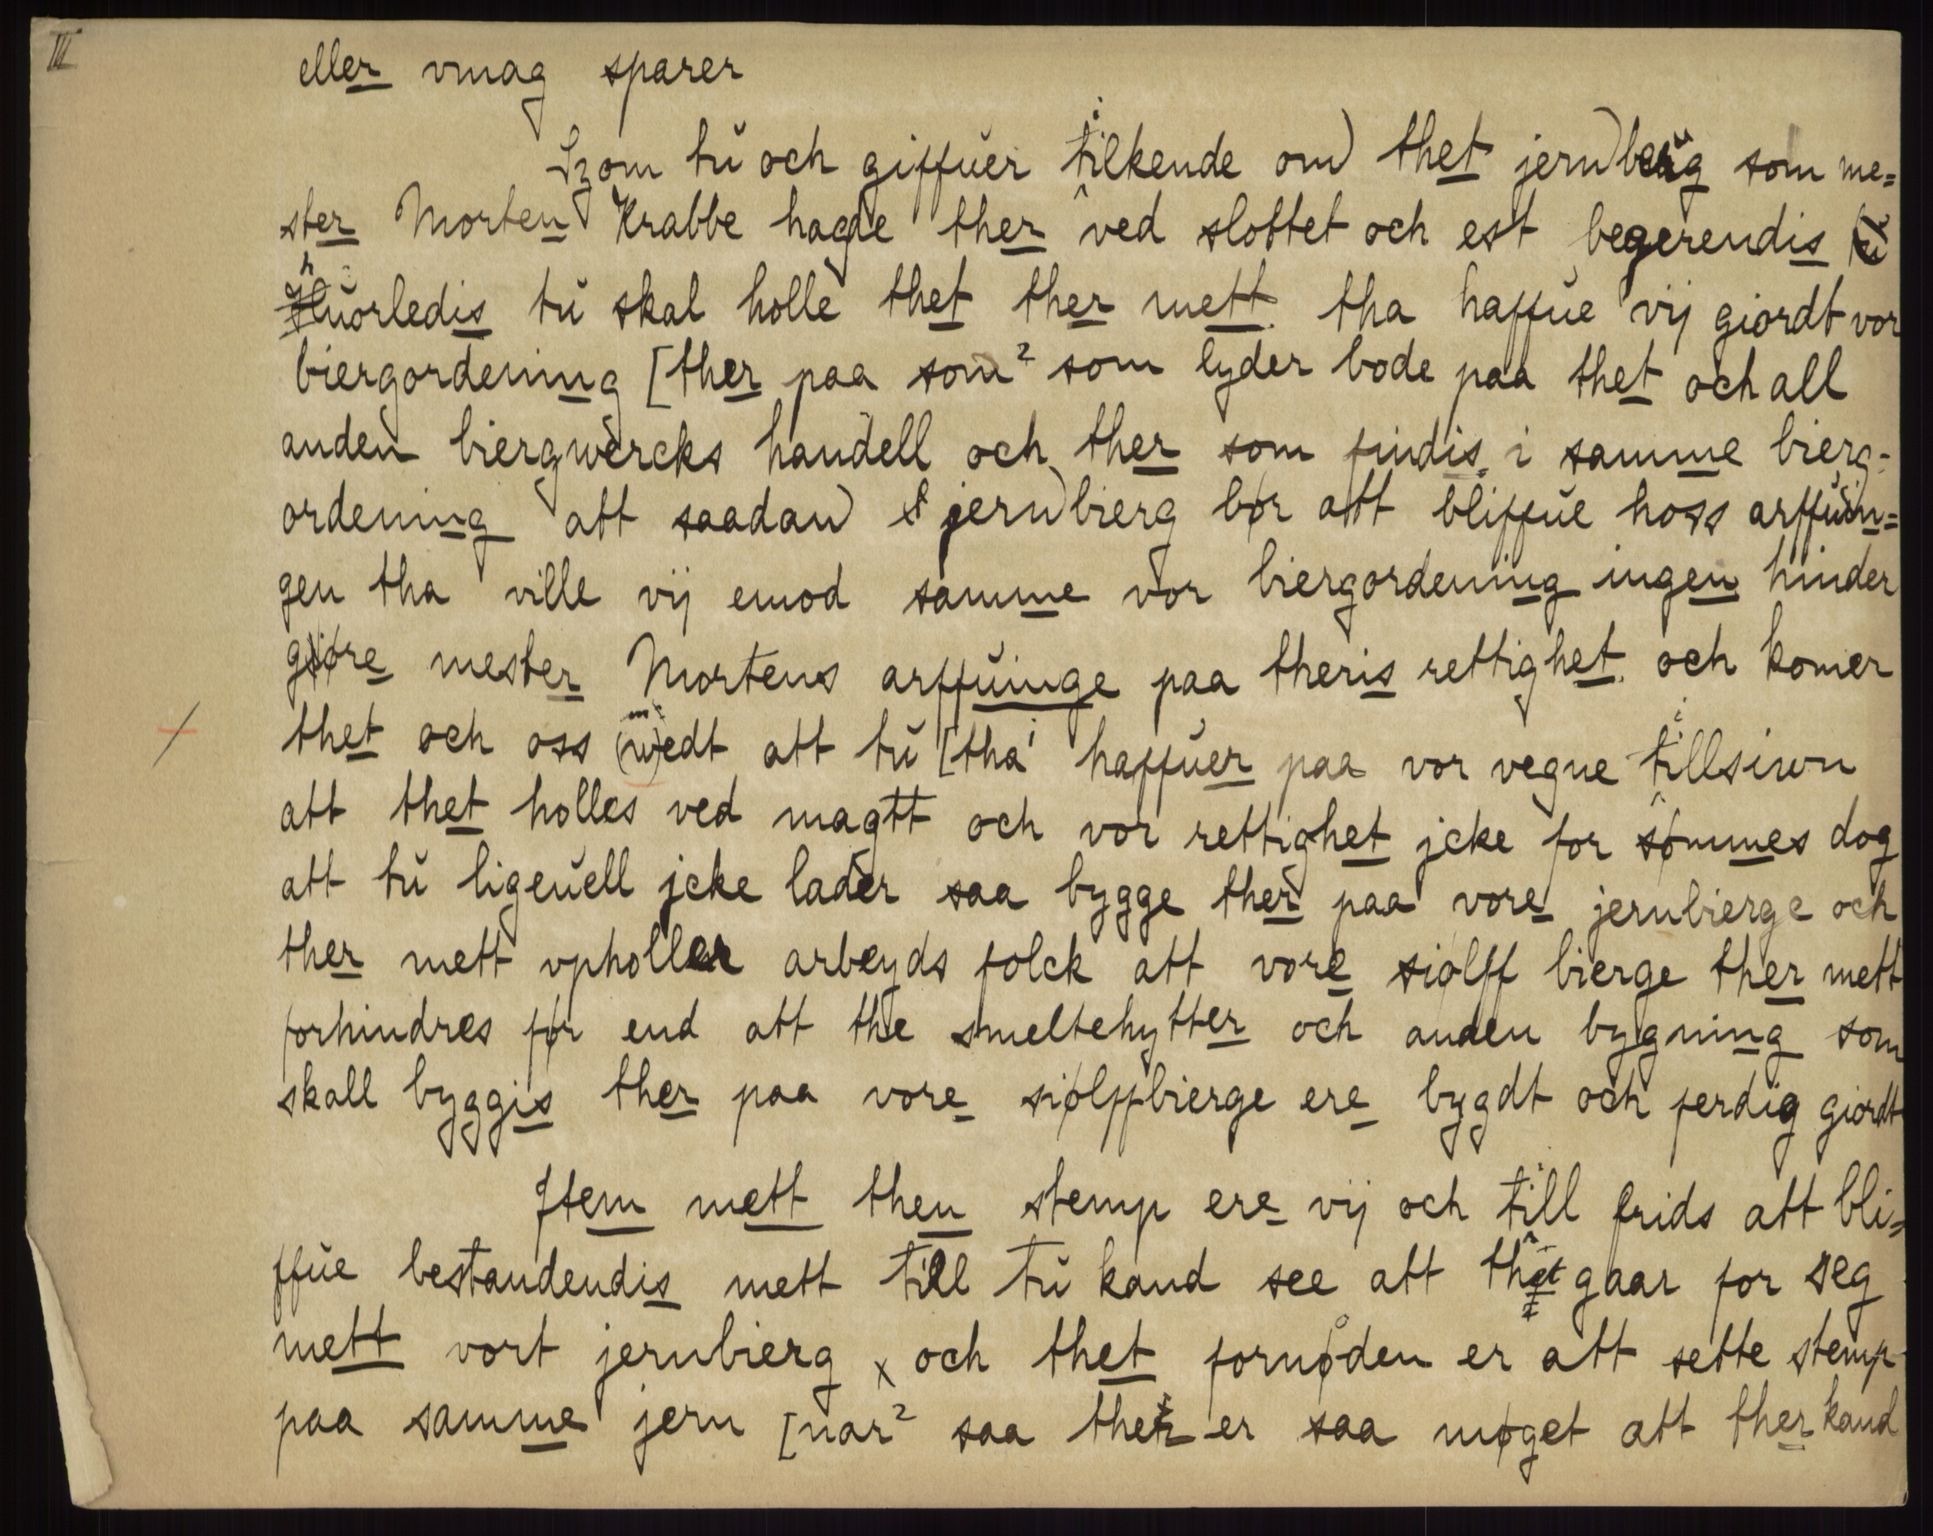 III
eller vmag sparer
Szom tŭ och giffŭer tilkende om) thet jern)berg som me=
ster Morten Krabbe hagde ther ved slottet och est begerendis
hŭorledis tŭ skal holle thet ther mett tha haffŭe vij giordt vor
biergordening [ther paa som² som lyder bode paa thet och all
anden biergwercks handell och ther som findis i samme bierg-
ordening att saadan) jern)bierg bør att bliffŭe hoss arffŭin=
gen tha ville vij emod samme vor biergordening ingen hinder
giøre mester Mortens arffŭinge paa theris rettighet och komer
thet och oss (w)edt att tŭ [tha¹ haffŭer paa vor vegne tillsiwn
att thet holles ved magtt och vor rettighet jcke for sømmes dog
att tŭ ligeŭell jcke lader saa bygge ther paa vore jernbierge och
ther mett vpholler arbeyds folck att vore siølff bierge ther mett
forhindres før end att the smeltehytter och anden bygning som
skall byggis ther paa vore siølffbierge ere bygdt och ferdig giordt
Jtem mett then stemp ere vij och till frids att bli=
ffŭe bestandendis mett till tŭ kand see att thet gaar for seg
mett vort jernbierg x och thet fornøden er att sette stemp
paa samme jern [nar² saa ther er saa møget att ther kand